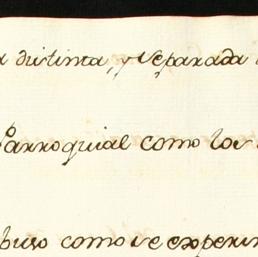 distinta, y separada
Parroquial como los
puso como se experim